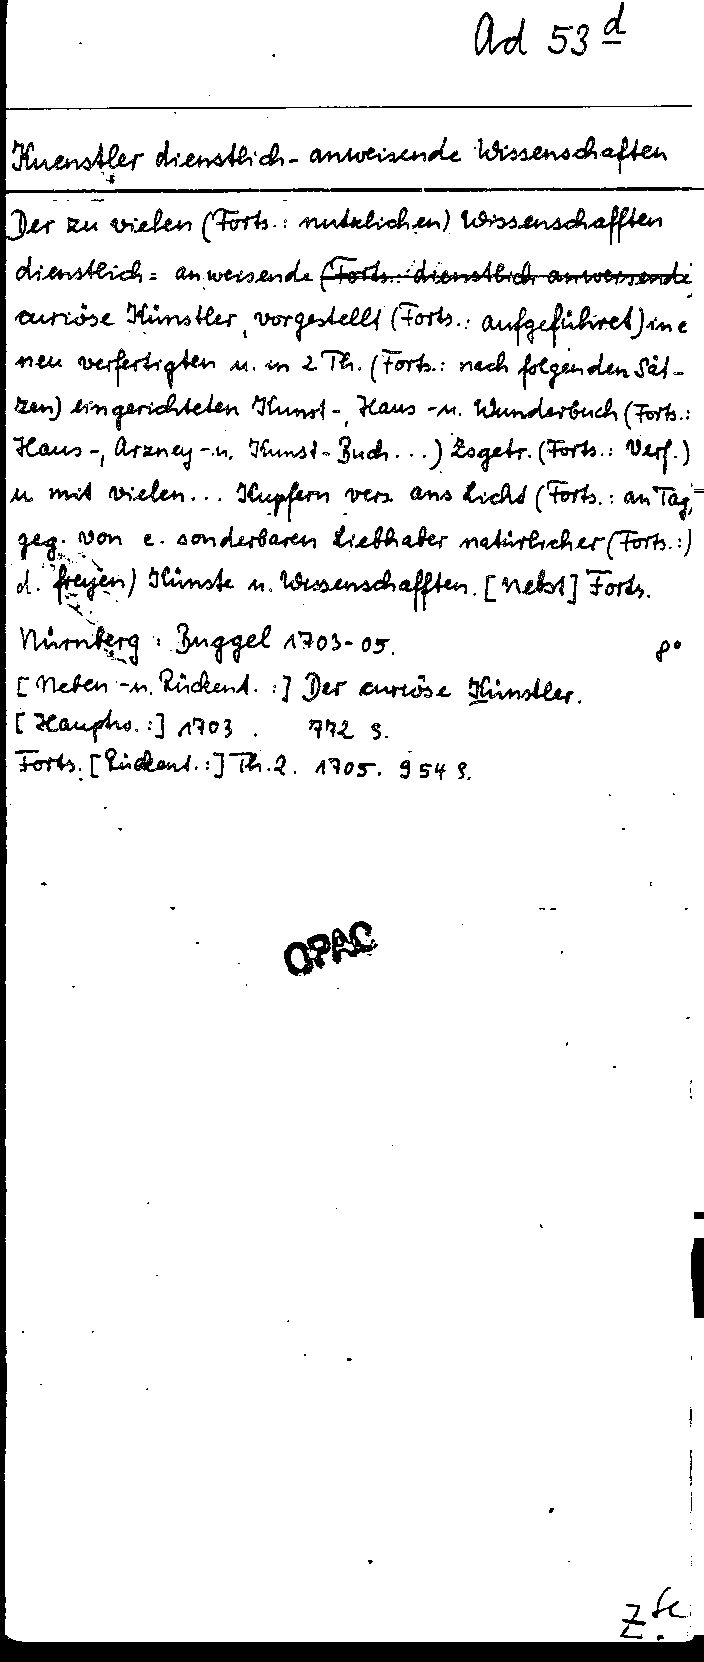 Ad 53 d
Kuenstler dienstlich-anweisende Wissenschaften
Der zu vielen (Forts.: nutzlichen) Wissenschafften
dienstlich= anweisende (Forts.: dienstlich anweisende
curiöse Künstler, vorgestellt (Forts.: aufgeführet) in e
neu verfertigten u. in 2 Th. (Forts.: nach folgenden Sät-
zen) eingerichteten Kunst-, Haus-u. Wunderbuch (Forts.:
Haus-, Arzney-u. Kunst-Buch...) Zsgetr. (Forts.: Verf.)
u mit vielen... Kupfern vers ans Licht (Forts.: an Tag)
geg. von e. sonderbaren Liebhaber natürlicher (Forts.:)
d. freyen) Künste u. Wissenschafften. [Nebst] Forts.
Nürnberg: Buggel 1703-05. 8°
[Neben-u. Rückent.:] Der curiöse Künstler.
[Hauptw.:] 1703. 772 S.
Forts. [Rückent.:] Th. 2. 1705. 954 S.
OPAC